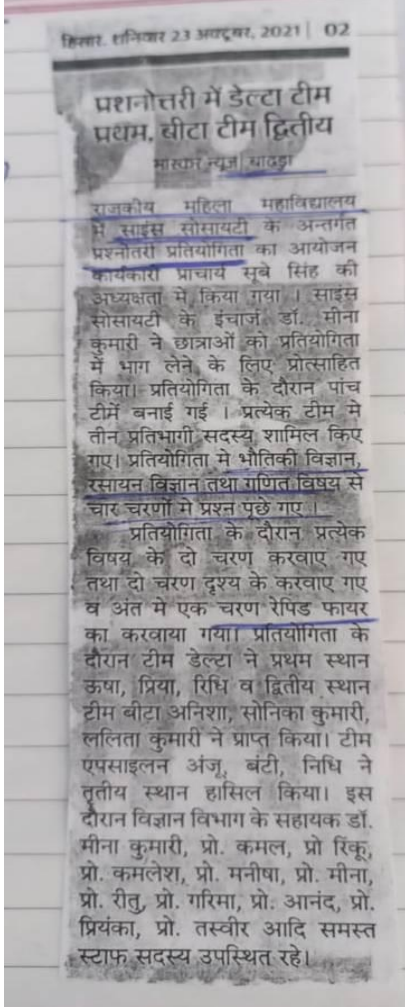 हिसार, शनिवार 23 अक्टूबर, 2021 | 02
प्रशनोत्तरी में डेल्टा टीम
प्रथम, बीटा टीम द्वितीय
भास्कर न्यूज | बाढड़ा
राजकीय महिला महाविद्यालय
में साइंस सोसायटी के अन्तर्गत
प्रश्नोतरी प्रतियोगिता का आयोजन
कार्यकारी प्राचार्य सूबे सिंह की
अध्यक्षता में किया गया । साइंस
सोसायटी के इंचार्ज डॉ. मीना
कुमारी ने छात्राओं को प्रतियोगिता
में भाग लेने के लिए प्रोत्साहित
किया। प्रतियोगिता के दौरान पांच
टीमें बनाई गई । प्रत्येक टीम मे
तीन प्रतिभागी सदस्य शामिल किए
गए। प्रतियोगिता मे भौतिकी विज्ञान,
रसायन विज्ञान तथा गणित विषय से
चार चरणों मे प्रश्न पूछे गए ।
प्रतियोगिता के दौरान प्रत्येक
विषय के दो चरण करवाए गए
तथा दो चरण दृश्य के करवाए गए
व अंत मे एक चरण रेपिड फायर
का करवाया गया। प्रतियोगिता के
दौरान टीम डेल्टा ने प्रथम स्थान
ऊषा, प्रिया, रिधि व द्वितीय स्थान
टीम बीटा अनिशा, सोनिका कुमारी,
ललिता कुमारी ने प्राप्त किया। टीम
एपसाइलन अंजू, बंटी, निधि ने
तृतीय स्थान हासिल किया। इस
दौरान विज्ञान विभाग के सहायक डॉ.
मीना कुमारी, प्रो. कमल, प्रो रिंकू,
प्रो. कमलेश, प्रो. मनीषा, प्रो. मीना,
प्रो. रीतु, प्रो. गरिमा, प्रो. आनंद, प्रो.
प्रियंका, प्रो. तस्वीर आदि समस्त
स्टाफ सदस्य उपस्थित रहे।